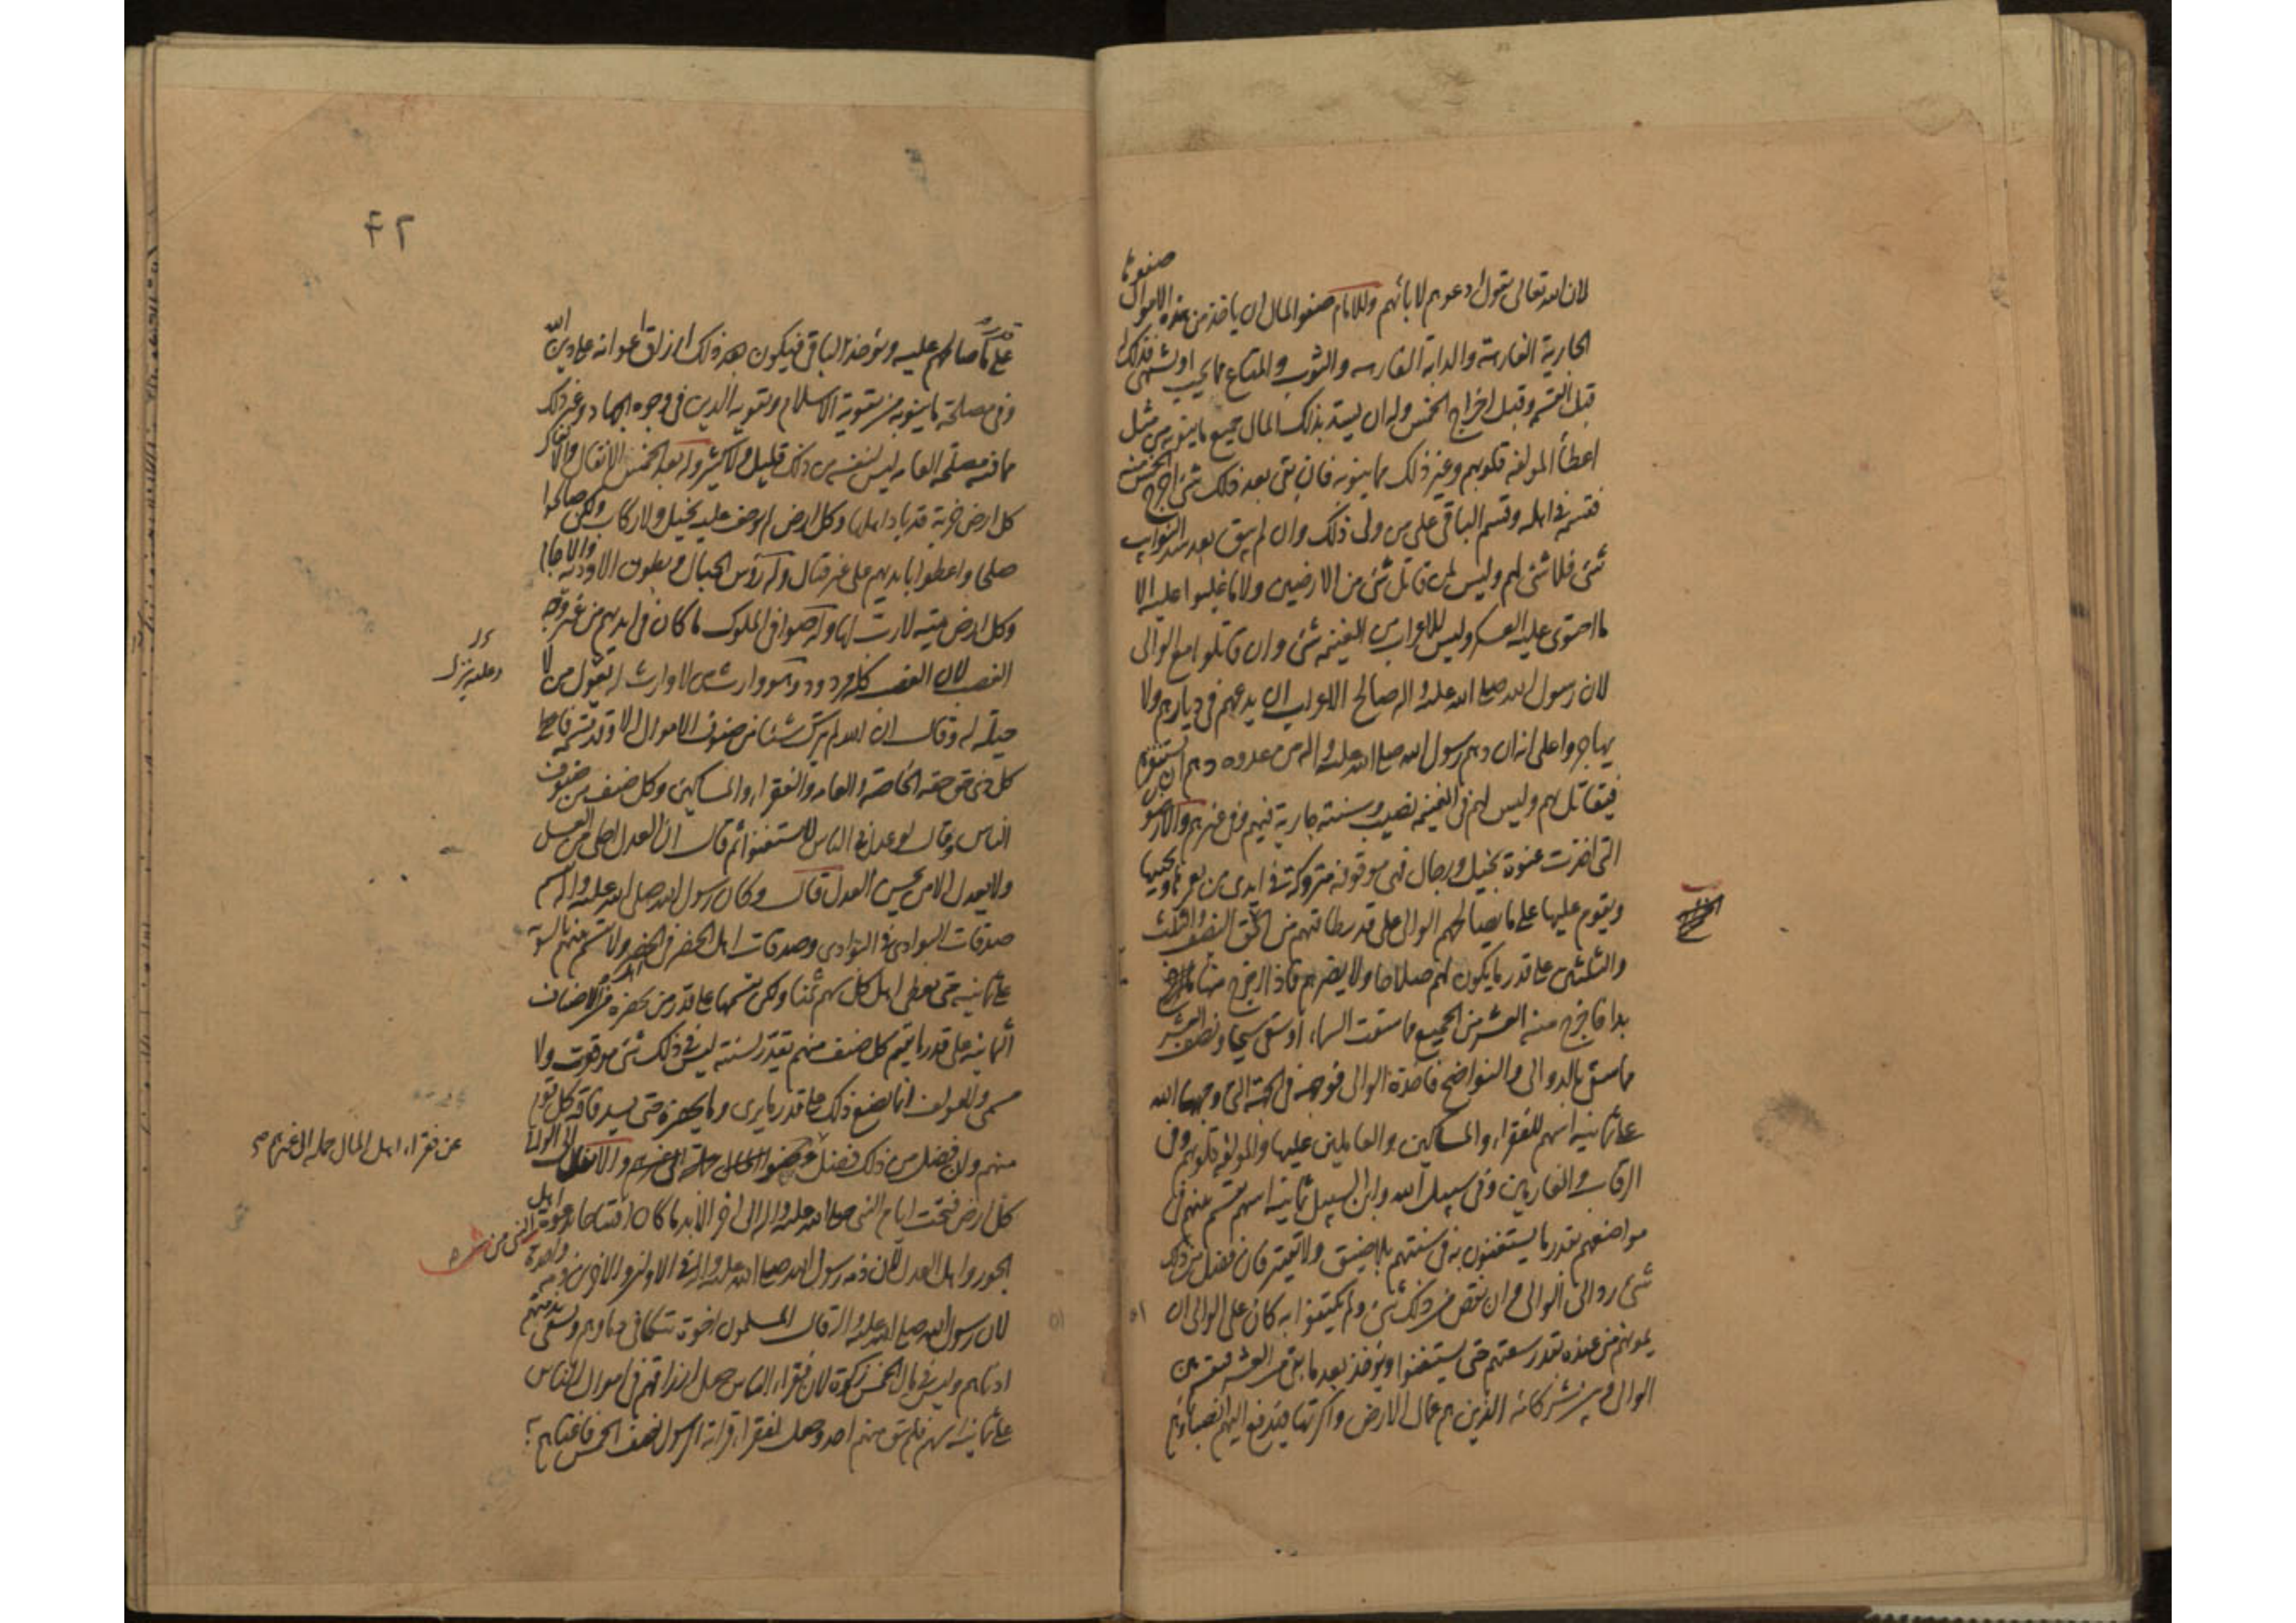 لان الله تعالى يقول ادعوهم لابائهم وللامام صفو المال ان ياخذ من هذه الاموال صفوها
الجارية الفارهة والدابة الفارهه والثوب والمتاع مما يحب او يشتهى فذلك له
قبل القسمه وقبل اخراج الخمس وله ان يسد بذلك المال جميع ما ينوبه من مثل
اعطاء المولفه قلوبهم وغير ذلك مما ينوبه فان بقى بعد ذلك شئ اخرج الخمس منه
فقسمه فى اهله وقسم الباقى على من ولى ذلك وان لم يبق بعد سد النوايب
شئ فلا شئ لهم وليس لمن قاتل شئ من الارضين ولا ما غلبوا عليه الا
ما احتوى عليه العسكر وليس للاعراب من الغنيمه شئ وان قاتلوا مع الوالى
لان رسول الله صلى الله عليه واله صالح الاعراب ان يدعهم فى ديارهم ولا
يهاجروا على انه ان دهم رسول الله صلى الله عليه واله من عدوه دهم ان يستنفرهم
فيقاتل بهم وليس لهم فى الغنيمه نصيب وسنته جارية فيهم وفى غيرهم والارضون
التى اخذت عنوة بخيل ورجال فهى موقوفه متروكة فى ايدى من يعمرها ويحييها
ويقوم عليها على ما يصالحهم الوالى على قدر طاقتهم من الحق النصف والثلث
والثلثين على قدر ما يكون لهم صلاحا ولا يضرهم فاذا اخرج منها ما اخرج
بدا فاخرج منه العشر من الجميع مما سقت السماء او سقى سيحا ونصف العشر
مما سقى بالدوالى والنواضح فاخذه الوالى فوجهه فى الجهة التى وجهها الله
على ثمانيه اسهم للفقراء والمساكين والعاملين عليها والمولفه قلوبهم وفى
الرقاب والغارمين وفى سبيل الله وابن السبيل ثمانيه اسهم تقسم بينهم فى
مواضعهم بقدر ما يستغنون به فى سنتهم بلا ضيق ولا تقتير فان فضل من ذلك
شئ رد الى الوالى وان نقص من ذلك شئ ولم يكتفوا به كان على الوالى ان
يمونهم من عنده بقدر سعتهم حتى يستغنوا ويؤخذ بعد ما بقى من العشر فيقسم بين
الوالى وبين شركائه الذين هم عمال الارض واكرتها فيدفع اليهم انصباؤهم
٤٢
على ما صالحهم عليه ويؤخذ الباقى فيكون بعد ذلك ارزاق اعوانه على دين الله
وفى مصلحة ما ينوبه من تقوية الاسلام وتقويه الدين فى وجوه الجهاد وغير ذلك
مما فيه مصلحه العامه ليس لنفسه من ذلك قليل ولا كثير وله بعد الخمس الانفال والانفال
كل ارض خربة قد باد اهلها وكل ارض لم يوجف عليه بخيل ولا ركاب ولكن صالحوا
صلحا واعطوا بايديهم على غير قتال وله رؤس الجبال وبطون الاودية والاجام
وكل ارض ميته لا رب لها وله صوافى الملوك ما كان فى ايديهم من غير وجه
الغصب لان الغصب كله مردود وهو وارث من لا وارث له يعول من لا
حيلة له وقال ان الله لم يترك شيئا من صنوف الاموال الا وقد قسمه فاعطى
كل ذى حق حقه الخاصة والعامه والفقراء والمساكين وكل صنف من صنوف
الناس وقال لو عدل فى الناس لاستغنوا ثم قال ان العدل احلى من العسل
ولا يعدل الا من يحسن العدل قال وكان رسول الله صلى الله عليه واله يقسم
صدقات البوادى فى البوادى وصدقات اهل الحضر فى الحضر ولا يقسم بينهم بالسويه
على ثمانيه حتى يعطى اهل كل سهم ثمنا ولكن يقسمها على قدر من يحضره من الاصناف
الثمانيه على قدر ما يقيم كل صنف منهم يقدر لسنته ليس فى ذلك شئ موقوت ولا
مسمى ولا مولف انما يضع ذلك على قدر ما يرى وما يحضره حتى يسد فاقة كل قوم
منهم وان فضل من ذلك فضل والانفال الى الوالى
كل ارض فتحت ايام النبى صلى الله عليه واله الى اخر الابد ما كان افتتاحا بدعوة اهل
الجور واهل العدل لان ذمه رسول الله صلى الله عليه واله فى الاولين والاخرين ذمه واحدة
لان رسول الله صلى الله عليه واله قال المسلمون اخوة تتكافى دماوهم ويسعى بذمتهم
ادناهم وليس فى مال الخمس زكوة لان فقراء الناس جعل ارزاقهم فى اموال الناس
على ثمانيه اسهم فلم يبق منهم احد وجعل لفقراء قرابه الرسول نصف الخمس فاغناهم
وعليه نزل
عن فقراء اهل المال حمله الى غيرهم صح
النبى من